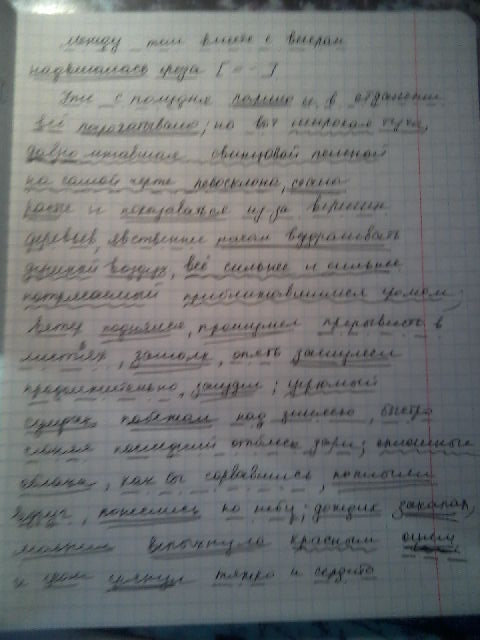 между тем вместе с вечером
надвигалась гроза [= -]
Уже с полудня парило и в отдалении
всё погрохатывало; но вот широкая туча,
давно лежавшая свинцовой пеленой
на самой черте небосклона, стала
расти и показываться из-за вершин
деревьев, явственнее начал вздрагивать
душный воздух, всё сильнее и сильнее
потрясаемый приближавшимся громом;
ветер поднялся, прошумел прерывисто в
листьях, замолк, опять зашумел
продолжительно, загудел; угрюмый
сумрак побежал над землею, быстро
сгоняя последний отблеск зари; сплошные
облака, как бы сорвавшись, поплыли
вдруг, понеслись по небу; дождик закапал,
молния вспыхнула красным огнём
и гром грянул тяжко и сердито